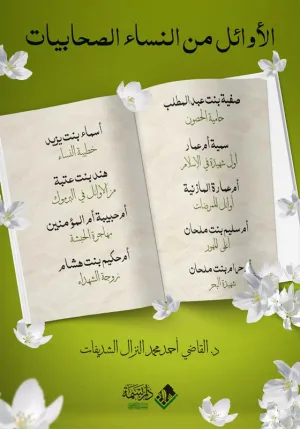 الأوائل من النساء الصحابيات
صفية بنت عبد المطلب
حامية الحصون
سمية أم عمار
أول شهيدة في الإسلام
أم عمارة المازنية
أم سليم بنت ملحان
أغلى المهور
أم حرام بنت ملحان
شهيدة البحر
أسماء بنت يزيد
خطيبة النساء
هند بنت عتبة
من الأوائل في اليرموك
أم حبيبة أم المؤمنين
مهاجرة الحبشة
أم حكيم بنت هشام
زوجة الشهداء
د. القاضي أحمد محمد النزال الشديفات